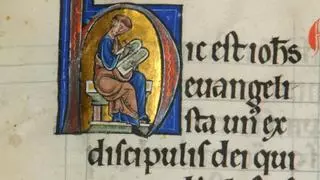 Hic est ioh̅s
euangeli
sta un̅ ex
discipulis dei qui